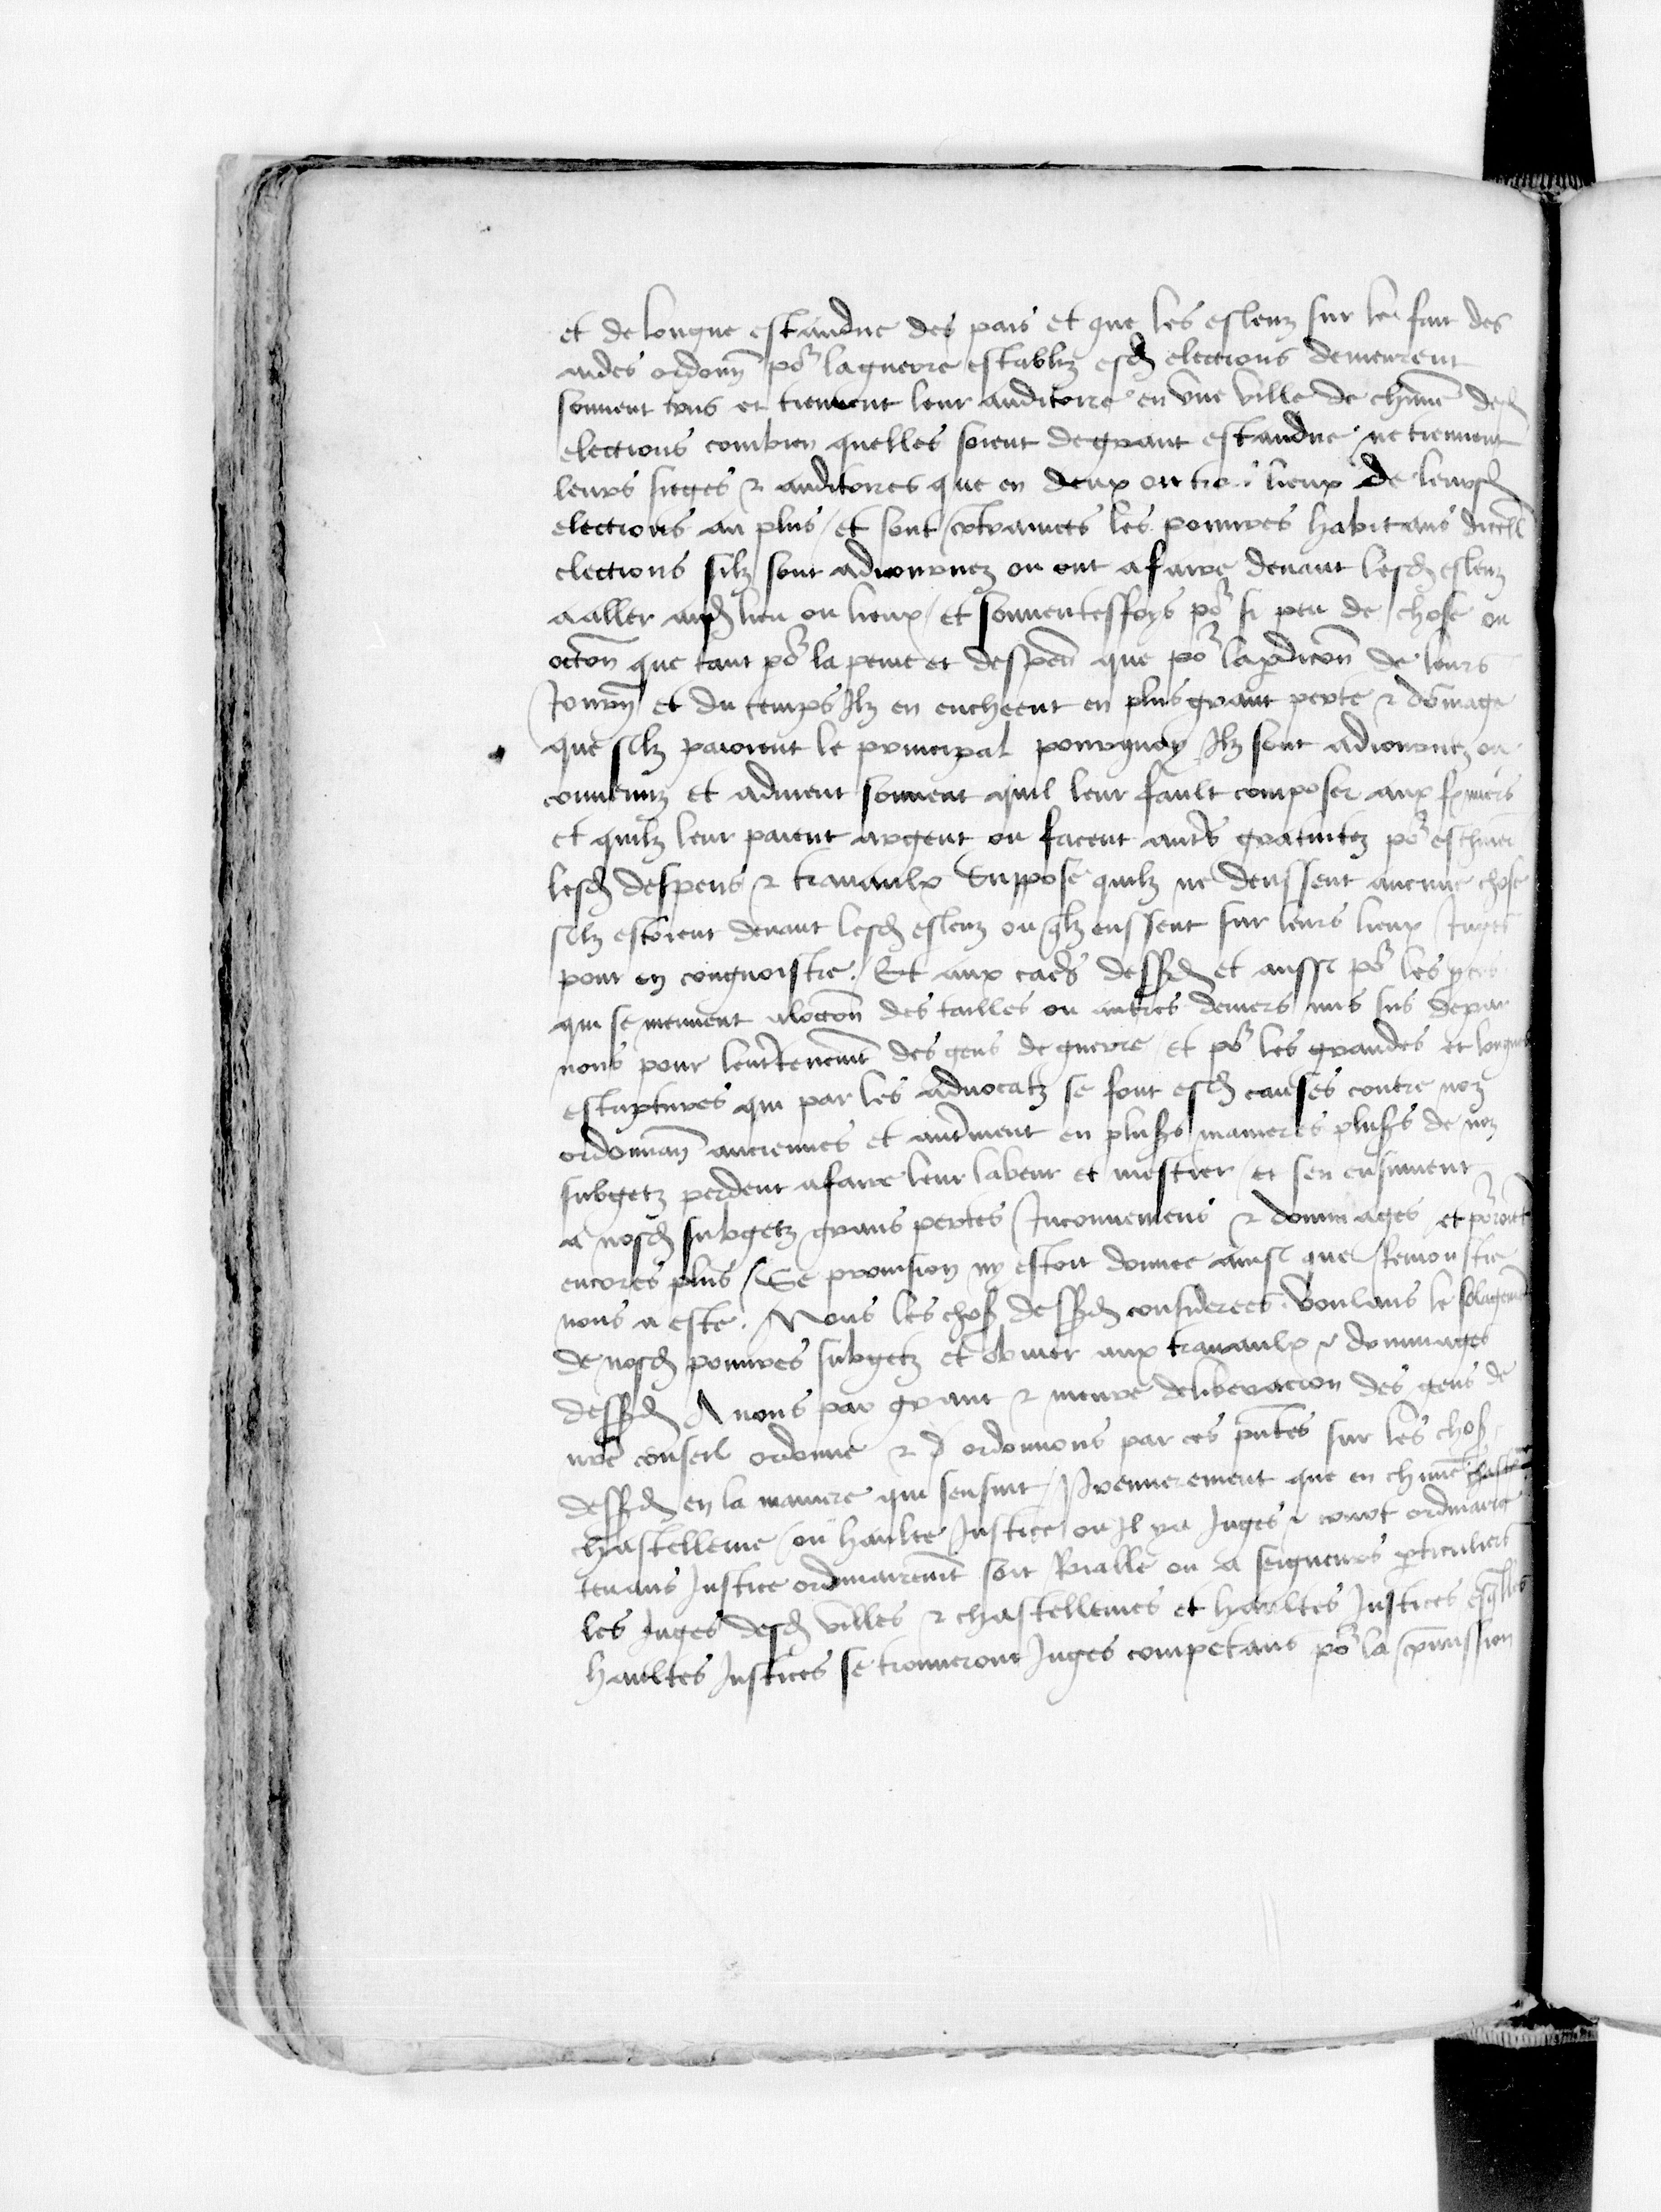 et de longue estandue des pais et que les esleuz sur le fait des
aides ordonn̄ po͛ la guerre establiz esd̄ elections demeurent
souuent tous et tiennent leur auditoire en vne ville de chūne desd̄
elections combien quelles soient de grant estandue ne tiennent
leurs sieges ⁊ auditoires que en deux ou trois lieux de leursd̄
elections au plus / et sont contrainctes les pouures habitans dicell̄
elections silz sont adiournez ou ont afaire deuant lesd̄ esleuz
a aller aud̄ lieu ou lieux / et souuentesffoys po͛ si peu de chose ou
occōn que tant po͛ la peine et despen̄ que po͛ la ꝑdicōn de leurs
Journ̄ et du temps Ilz en encheent en plus grant perte ⁊ dōmage
que silz paioient le principal pourquoy Ilz sont adiournez ou
conuenuz et aduient souuent quil leur fault composer aux fermiers
et quilz leur paient argent ou facent autrēs gratuitez po͛ escheuer
lesd̄ despens ⁊ trauaulx Suppose quilz ne deussent aucune chose
silz estoient deuant lesd̄ esleuz ou qlz eussent sur leurs lieux Juges
pour en congnoistre. Et aux causes dessusd̄ et aussi po͛ les proces
qui se meuuent aloccōn des tailles ou autres deniers mis sus de par
nous pour lentretenemēt des gens de guerre / et po͛ les grandes et longues
escriptures qui par les aduocatz se font esd̄ causes contre noz
ordonnan̄ anciennes et autrement en plusrs manieres plusrs de noz
subgetz perdent afaire leur labeur et mestier / et sen ensuiuent
a nosd̄ subgetz grans pertes Inconueniens ⁊ dommages et po͛roiēt
encores plus / Se prouision ny estoit donnee ainsi que Remonstre
nous a este. Nous les choses dessusd̄ considerees. voulans le solagemēt
de nosd̄ pouures subgetz et obuier aux trauaulx ⁊ dommages
dessusd̄ Auons par grant ⁊ meure deliberacion des gens de
nrē conseil ordonne ⁊ ordonnons par ces pn̄tes sur les choses
dessusd̄ en la maniere qui sensuit / Premierement que en chūne
chastellenie / ou haulte Justice ou Il ya Juges ⁊ court ordinaire
tenans Justice ordinairemēt soit Roialle ou a seigneurs ꝑticuliers
les Juges desd̄ villes ⁊ chastellenies et haultes Justices esqlles
haultes Justices se trouueront Juges competans po͛ la